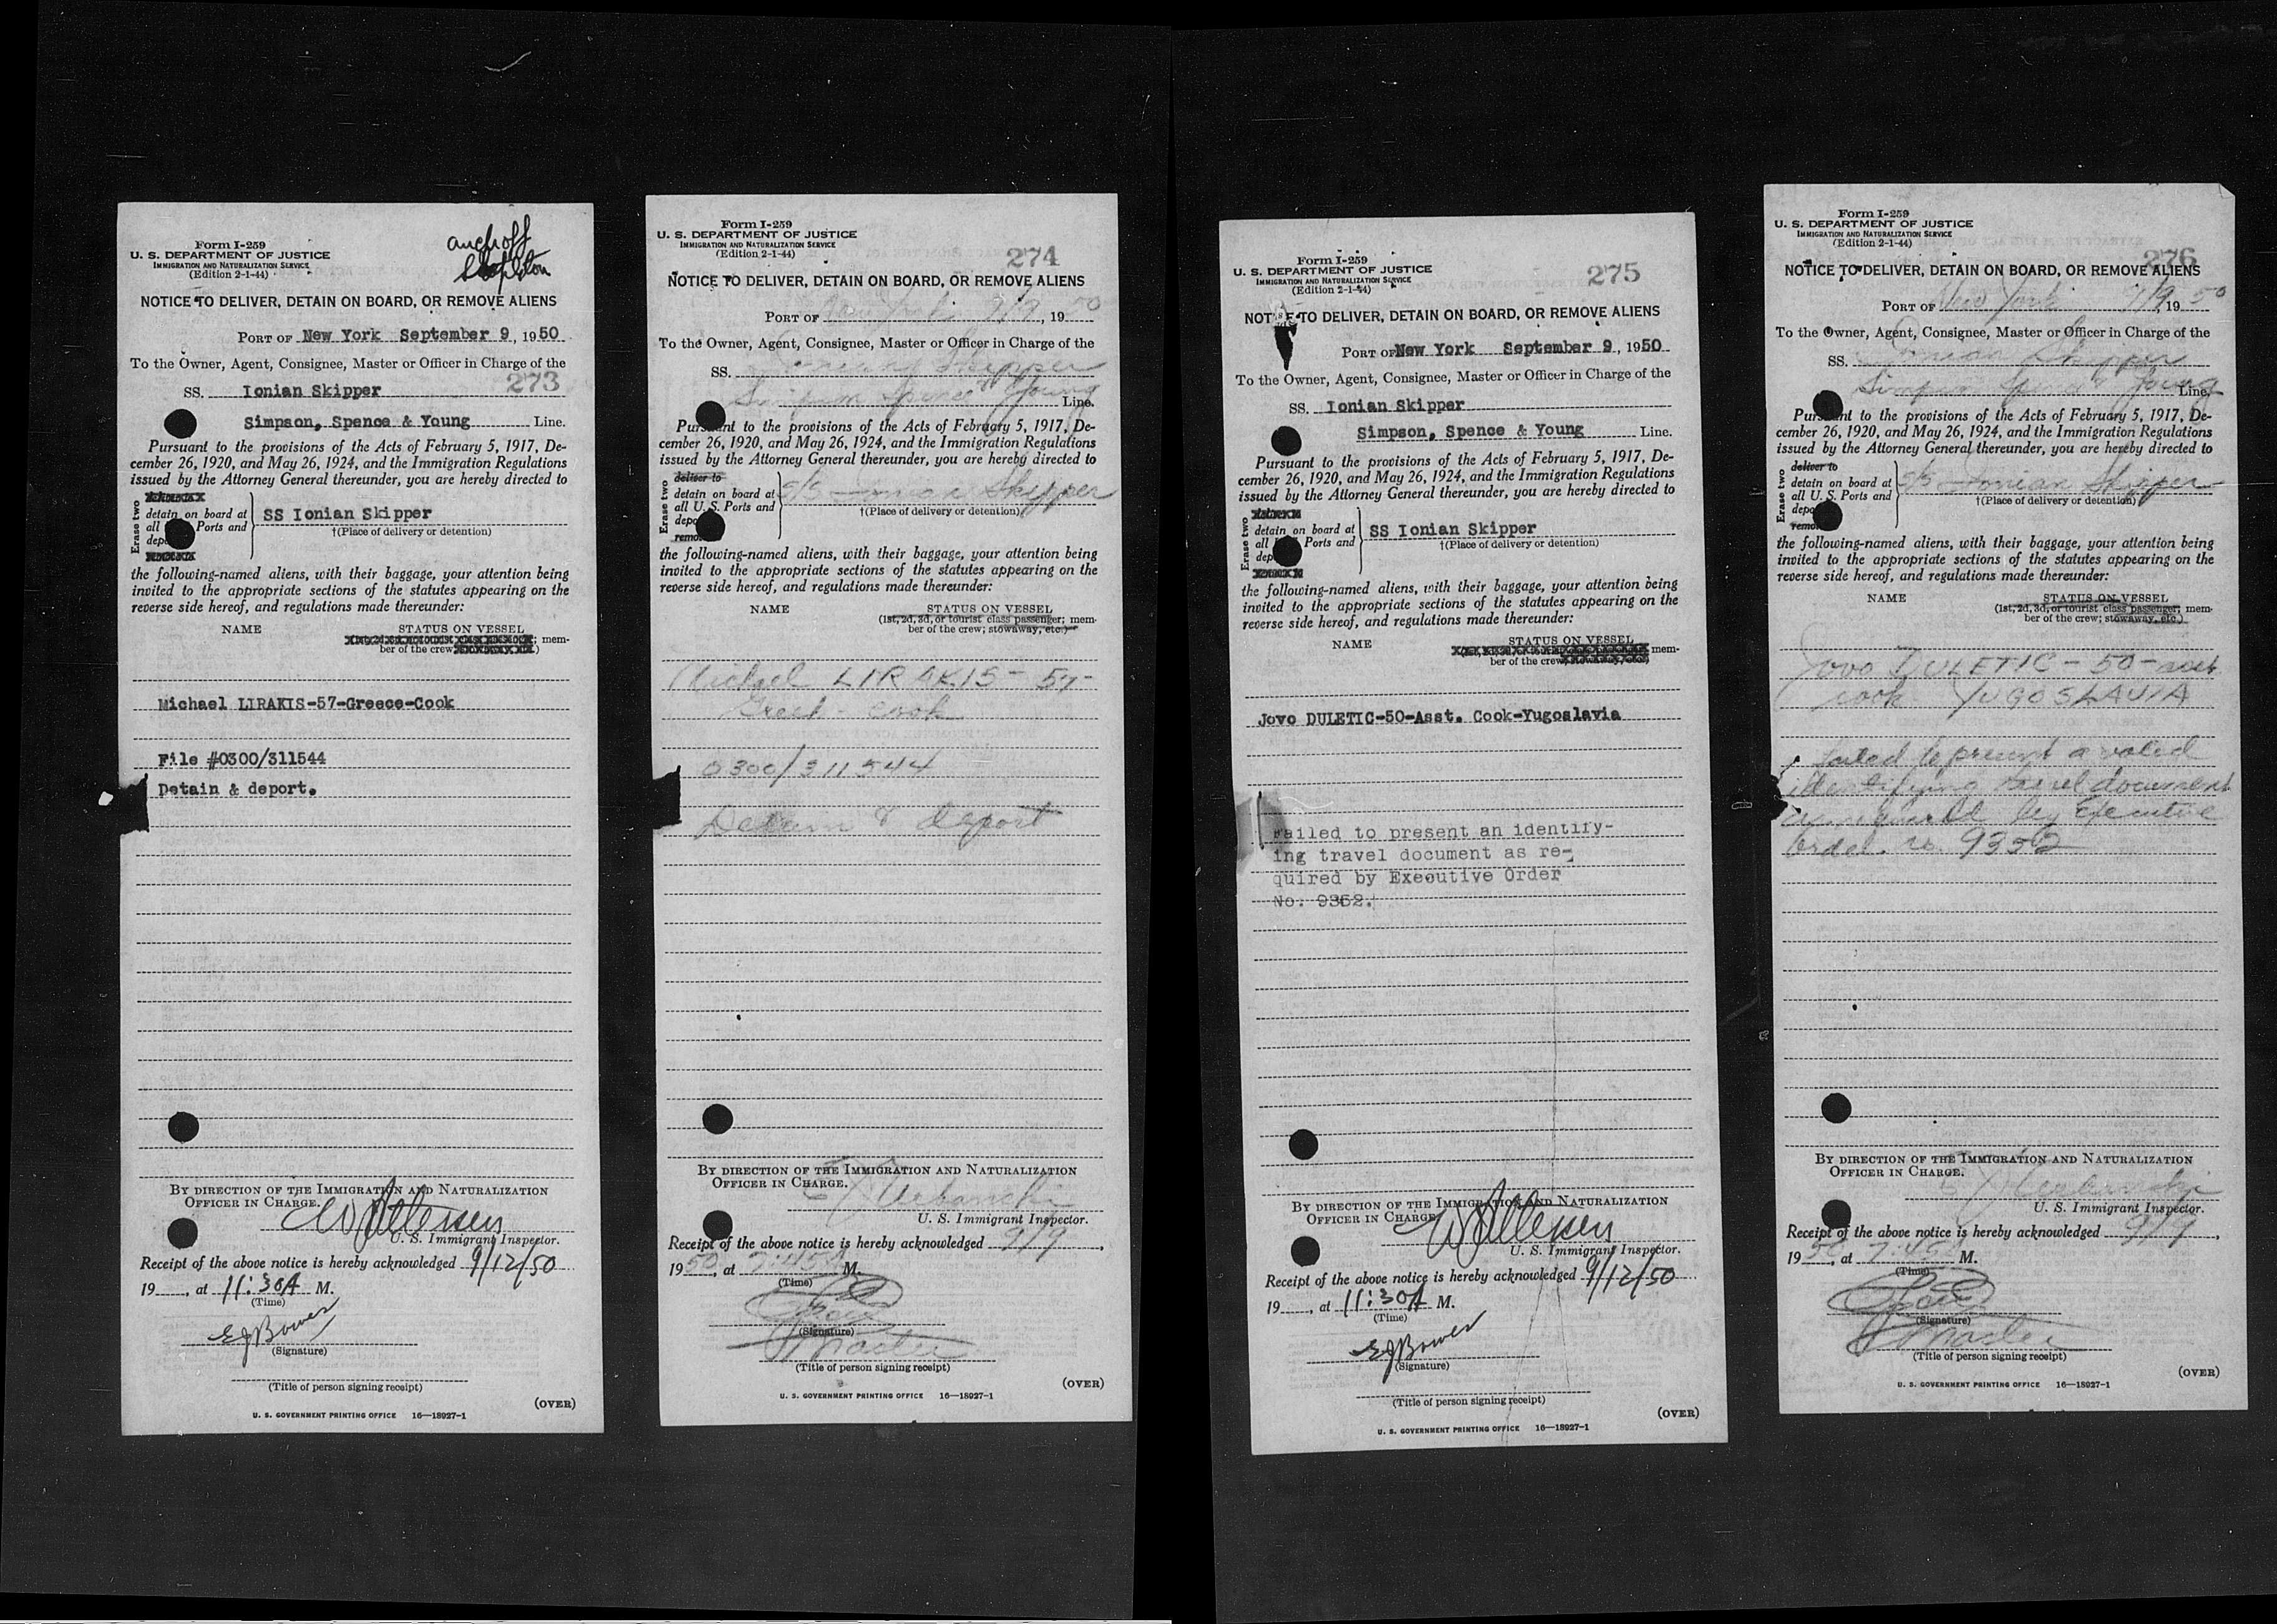 anch off
Stapleton
Form I-259
U. S. DEPARTMENT OF JUSTICE
IMMIGRATION AND NATURALIZATION SERVICE
(Edition 2-1-44)
NOTICE TO DELIVER, DETAIN ON BOARD, OR REMOVE ALIENS
PORT OF New York September 9, 1950
To the Owner, Agent, Consignee, Master or Officer in Charge of the
273
SS. Ionian Skipper
Simpson, Spence & Young Line.
Pursuant to the provisions of the Acts of February 5, 1917, De-
cember 26, 1920, and May 26, 1924, and the Immigration Regulations
issued by the Attorney General thereunder, you are hereby directed to
Erase two
detain on board at
all Ports and
SS Ionian Skipper
†(Place of delivery or detention)
the following-named aliens, with their baggage, your attention being
invited to the appropriate sections of the statutes appearing on the
reverse side hereof, and regulations made thereunder:
NAME STATUS ON VESSEL
mem-
ber of the crew
Michael LIRAKIS-57-Greece-Cook
File #0300/311544
Detain & deport.
BY DIRECTION OF THE IMMIGRATION AND NATURALIZATION
OFFICER IN CHARGE.
U. S. Immigrant Inspector.
Receipt of the above notice is hereby acknowledged 9/12/50
19, at 11:30A M.
(Time)
EJBower
(Signature)
(Title of person signing receipt)
(OVER)
U. S. GOVERNMENT PRINTING OFFICE 16—18927-1
Form I-259
U. S. DEPARTMENT OF JUSTICE
IMMIGRATION AND NATURALIZATION SERVICE
(Edition 2-1-44)
274
NOTICE TO DELIVER, DETAIN ON BOARD, OR REMOVE ALIENS
PORT OF New York 9/9, 1950
To the Owner, Agent, Consignee, Master or Officer in Charge of the
SS. Ionian Skipper
Simpson Spence & Young Line.
Pursuant to the provisions of the Acts of February 5, 1917, De-
cember 26, 1920, and May 26, 1924, and the Immigration Regulations
issued by the Attorney General thereunder, you are hereby directed to
Erase two
deliver to
detain on board at
all U. S. Ports and
S/S Ionian Skipper
†(Place of delivery or detention)
the following-named aliens, with their baggage, your attention being
invited to the appropriate sections of the statutes appearing on the
reverse side hereof, and regulations made thereunder:
NAME STATUS ON VESSEL
(1st, 2d, 3d, or tourist class passenger; mem-
ber of the crew; stowaway, etc.)
Michael LIRAKIS - 57-
Greek - cook
0300/311544
Detain & deport
BY DIRECTION OF THE IMMIGRATION AND NATURALIZATION
OFFICER IN CHARGE.
U. S. Immigrant Inspector.
Receipt of the above notice is hereby acknowledged 9/9,
1950, at 7:45A M.
(Time)
(Signature)
Master
(Title of person signing receipt)
(OVER)
U. S. GOVERNMENT PRINTING OFFICE 16—18927-1
Form I-259
U. S. DEPARTMENT OF JUSTICE
IMMIGRATION AND NATURALIZATION SERVICE
(Edition 2-1-44)
275
TO DELIVER, DETAIN ON BOARD, OR REMOVE ALIENS
PORT OF New York September 9, 1950
To the Owner, Agent, Consignee, Master or Officer in Charge of the
SS. Ionian Skipper
Simpson, Spence & Young Line.
Pursuant to the provisions of the Acts of February 5, 1917, De-
cember 26, 1920, and May 26, 1924, and the Immigration Regulations
issued by the Attorney General thereunder, you are hereby directed to
Erase two
detain on board at
all Ports and
SS Ionian Skipper
†(Place of delivery or detention)
the following-named aliens, with their baggage, your attention being
invited to the appropriate sections of the statutes appearing on the
reverse side hereof, and regulations made thereunder:
NAME STATUS ON VESSEL
mem-
ber of the crew
Jovo DULETIC-50-Asst. Cook-Yugoslavia
Failed to present an identify-
ing travel document as re-
quired by Executive Order
No. 9352.
BY DIRECTION OF THE IMMIGRATION AND NATURALIZATION
OFFICER IN CHARGE
U. S. Immigrant Inspector.
Receipt of the above notice is hereby acknowledged 9/12/50
19, at 11:30A M.
(Time)
EJBower
(Signature)
(Title of person signing receipt)
(OVER)
U. S. GOVERNMENT PRINTING OFFICE 16—18927-1
Form I-259
U. S. DEPARTMENT OF JUSTICE
IMMIGRATION AND NATURALIZATION SERVICE
(Edition 2-1-44)
276
NOTICE TO DELIVER, DETAIN ON BOARD, OR REMOVE ALIENS
PORT OF New York 9/9, 1950
To the Owner, Agent, Consignee, Master or Officer in Charge of the
SS. Ionian Skipper
Simpson Spence & Young Line.
Pursuant to the provisions of the Acts of February 5, 1917, De-
cember 26, 1920, and May 26, 1924, and the Immigration Regulations
issued by the Attorney General thereunder, you are hereby directed to
Erase two
deliver to
detain on board at
all U. S. Ports and
S/S Ionian Skipper
†(Place of delivery or detention)
the following-named aliens, with their baggage, your attention being
invited to the appropriate sections of the statutes appearing on the
reverse side hereof, and regulations made thereunder:
NAME STATUS ON VESSEL
(1st, 2d, 3d, or tourist class passenger; mem-
ber of the crew; stowaway, etc.)
Jovo DULETIC - 50 - asst
cook YUGOSLAVIA
failed to present a valid
identifying travel document
as required by Executive
Order no. 9352
BY DIRECTION OF THE IMMIGRATION AND NATURALIZATION
OFFICER IN CHARGE.
U. S. Immigrant Inspector.
Receipt of the above notice is hereby acknowledged 9/9,
1950, at 7:45A M.
(Time)
(Signature)
Master
(Title of person signing receipt)
(OVER)
U. S. GOVERNMENT PRINTING OFFICE 16—18927-1